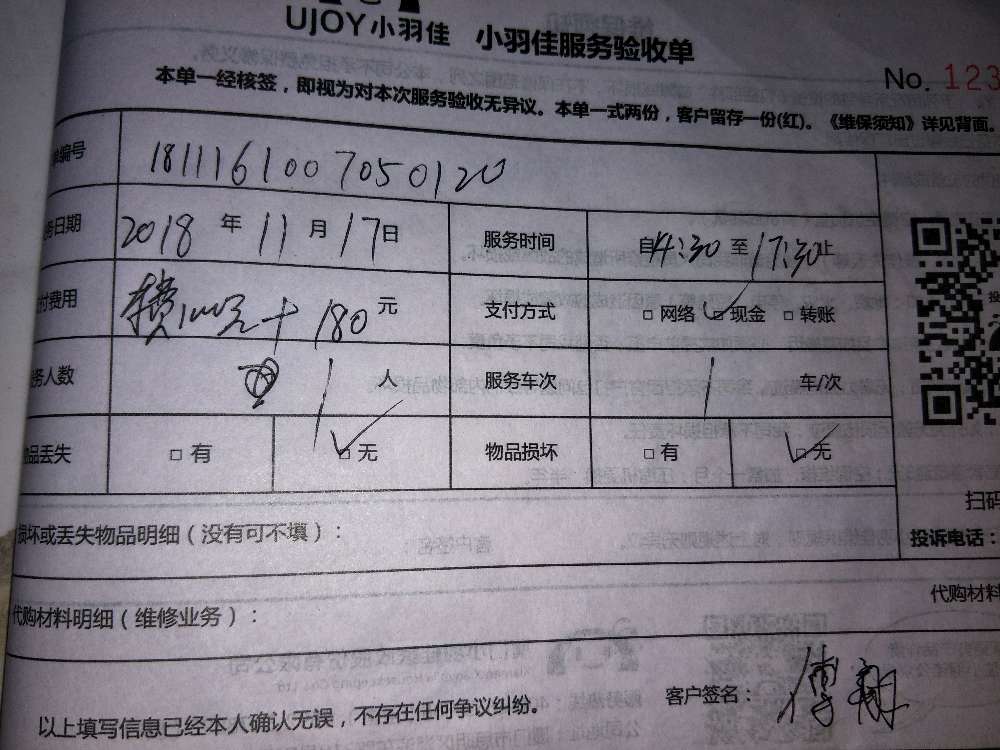 UJOY小羽佳 小羽佳服务验收单
No. 123
本单一经核签，即视为对本次服务验收无异议。本单一式两份，客户留存一份(红)。《维保须知》详见背面。
编号 1811161007050120
务日期 2018 年 11 月 17 日 服务时间 自14:30 至 17:30止
付费用 +180 元 支付方式 □ 网络 □ 现金 □ 转账
务人数 1 人 服务车次 1 车/次
品丢失 □ 有 □ 无 物品损坏 □ 有 □ 无
扫码
损坏或丢失物品明细（没有可不填）： 投诉电话：
代购材料明细（维修业务）： 代购材料
以上填写信息已经本人确认无误，不存在任何争议纠纷。 客户签名：